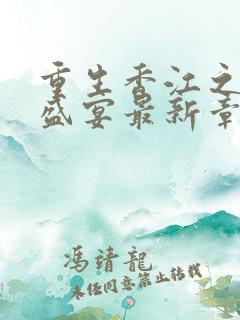 重生香江之
盛宴最新章
馮靖龍
未经同意禁止转载